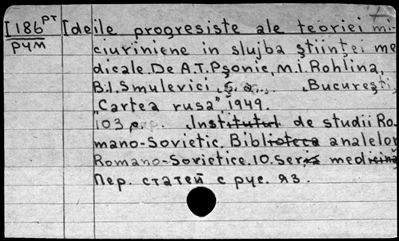 I186 РТ Ideile progresiste ale teoriei mi-
РУМ ciuriniene in slujba ştiinţei me
dicale. De A.T. Pşonic, M.I. Rohlina,
B.I. Smulevici, ş. a., Bucureşti,
"Cartea rusa", 1949.
103 p. Institutul de studii Ro-
mano-Sovietic. Biblioteca analelor
Romano-Sovietice. 10. Seria medicină
Пер. статей с рус. яз.